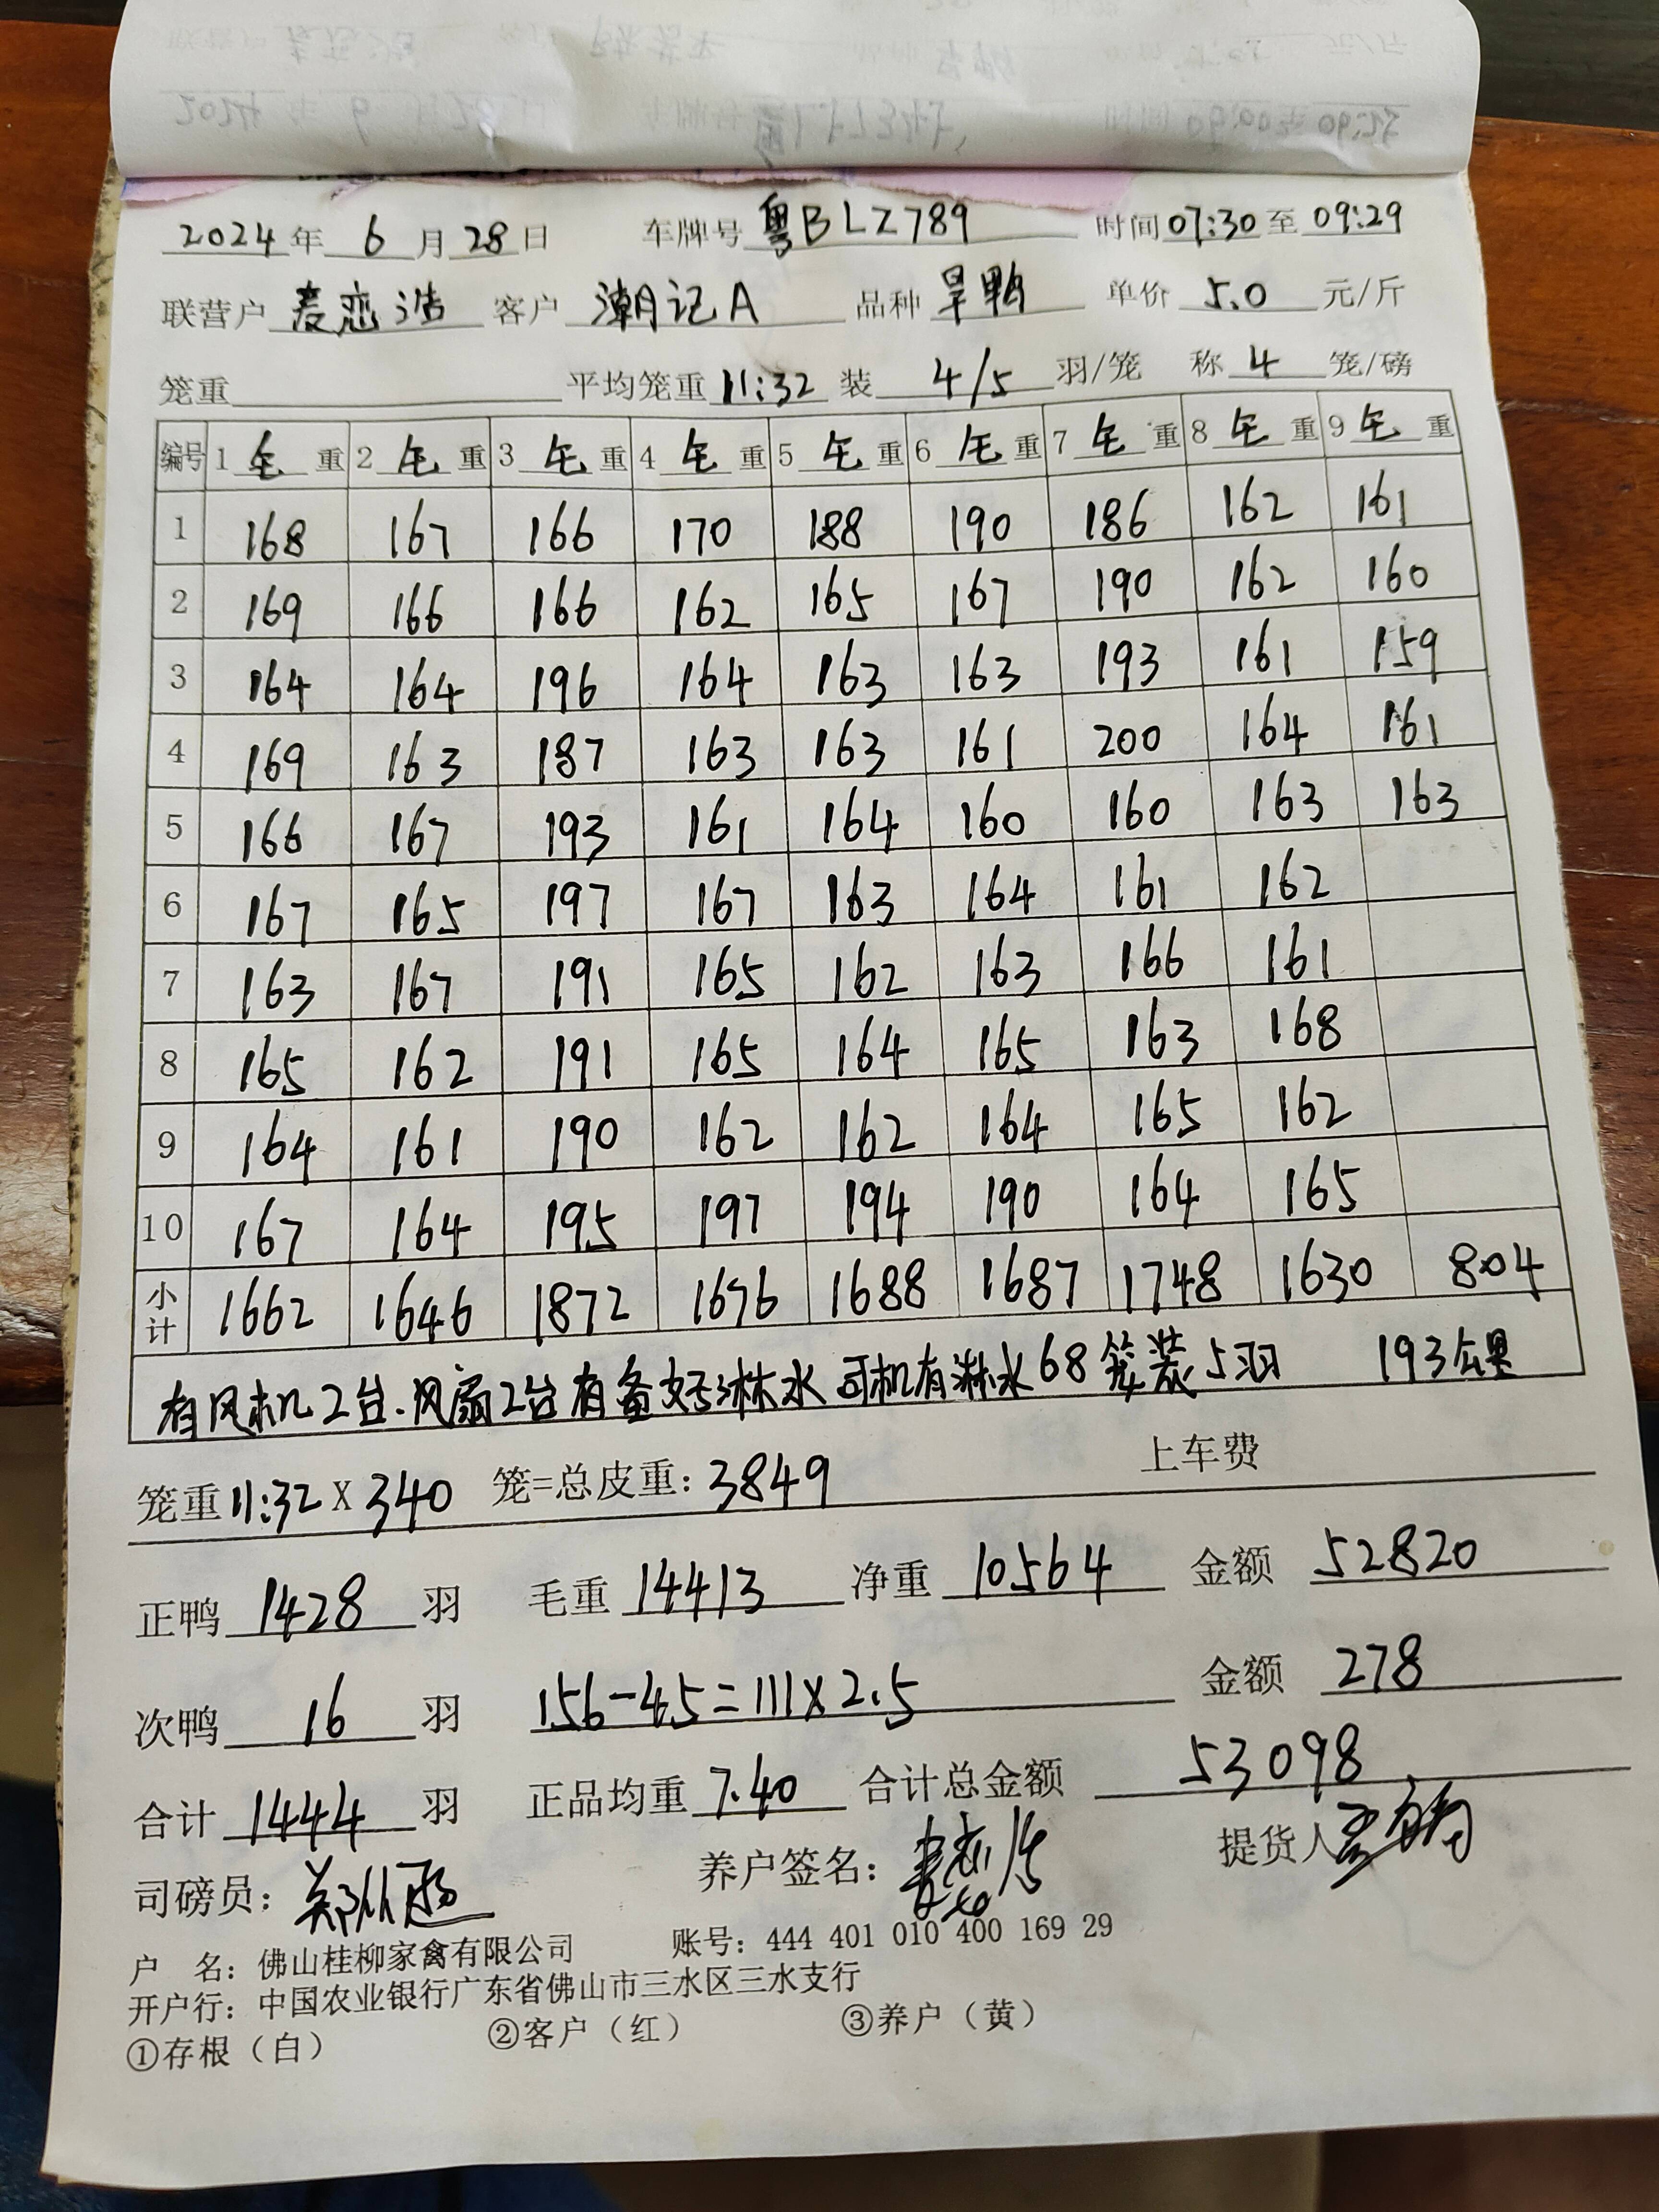 2024年 6 月 28 日 车牌号 粤BLZ789 时间 07:30 至 09:29
联营户 麦恋浩 客户 潮记A 品种 旱鸭 单价 5.0 元/斤
笼重 平均笼重 11:32 装 4/5 羽/笼 称 4 笼/磅
编号 1 毛 重 2 毛 重 3 毛 重 4 毛 重 5 毛 重 6 毛 重 7 毛 重 8 毛 重 9 毛 重
1 168 167 166 170 188 190 186 162 161
2 169 166 166 162 165 167 190 162 160
3 164 164 196 164 163 163 193 161 159
4 169 163 187 163 163 161 200 164 161
5 166 167 193 161 164 160 160 163 163
6 167 165 197 167 163 164 161 162
7 163 167 191 165 162 163 166 161
8 165 162 191 165 164 165 163 168
9 164 161 190 162 162 164 165 162
10 167 164 195 197 194 190 164 165
小计 1662 1646 1872 1676 1688 1687 1748 1630 804
有风机2台.风扇2台有备好淋水 司机有淋水68笼装5羽 193公里
笼重 11:32 X 340 笼=总皮重: 3849 上车费
正鸭 1428 羽 毛重 14413 净重 10564 金额 52820
次鸭 16 羽 156-45=111X2.5 金额 278
合计 1444 羽 正品均重 7.40 合计总金额 53098
司磅员: 养户签名: 提货人
户 名: 佛山桂柳家禽有限公司 账号: 444 401 010 400 169 29
开户行: 中国农业银行广东省佛山市三水区三水支行
①存根（白） ②客户（红） ③养户（黄）